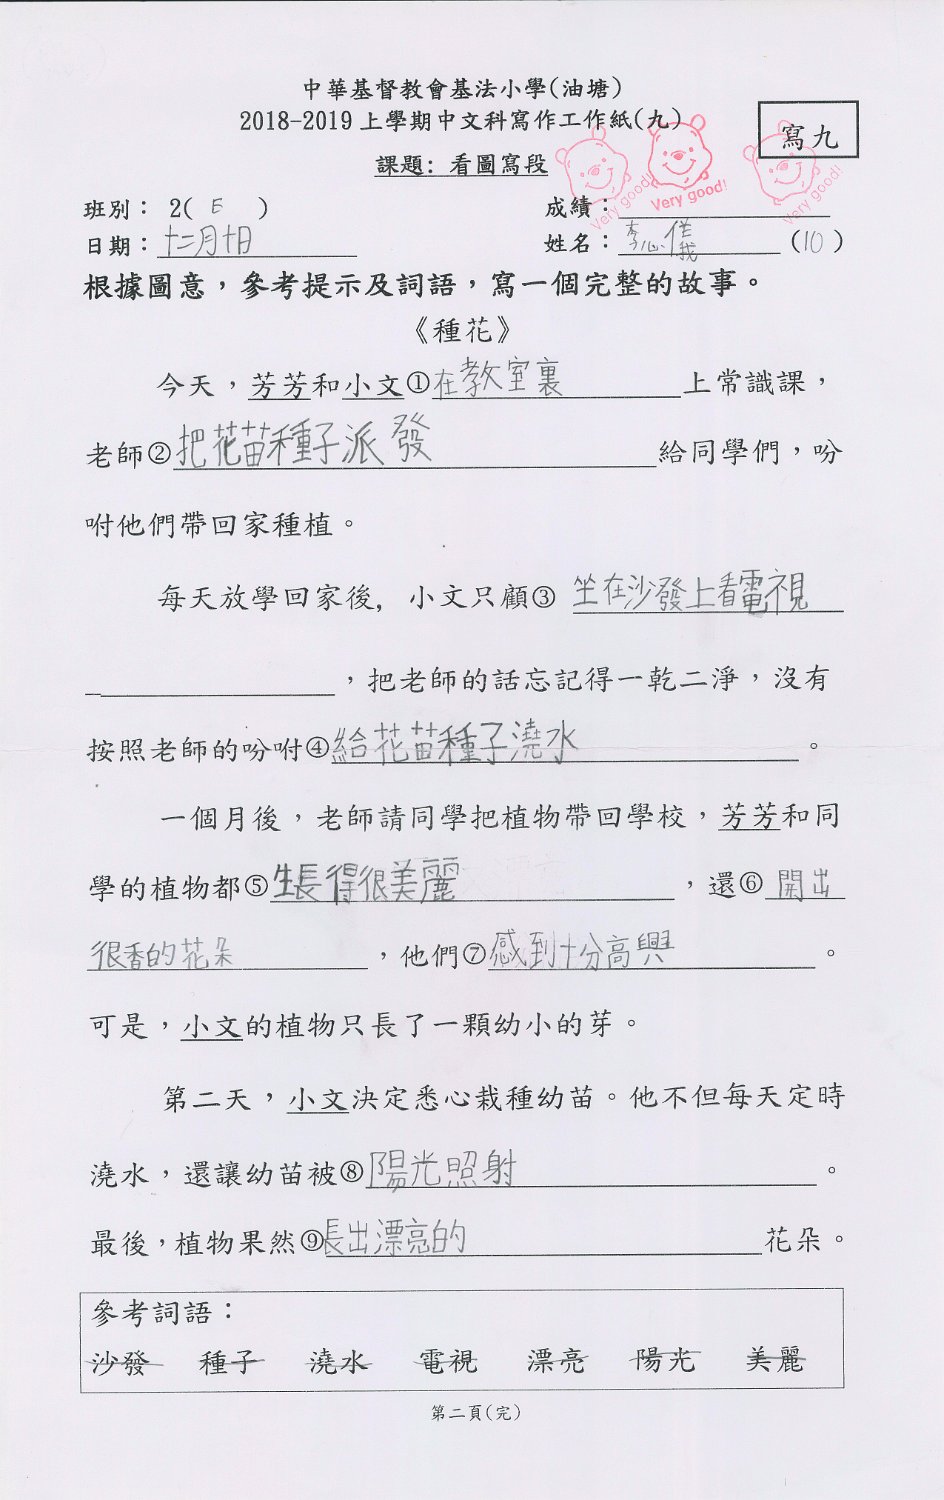 中華基督教會基法小學(油塘)
2018-2019上學期中文科寫作工作紙(九)
寫九
課題: 看圖寫段
班別： 2( E )
成績：
Very good!
Very good!
Very good!
日期：十二月十日
姓名：李心儀 (10)
根據圖意，參考提示及詞語，寫一個完整的故事。
《種花》
今天，芳芳和小文①在教室裏上常識課，
老師②把花苗種子派發給同學們，吩
咐他們帶回家種植。
每天放學回家後, 小文只顧③ 坐在沙發上看電視
，把老師的話忘記得一乾二淨，沒有
按照老師的吩咐④給花苗種子澆水。
一個月後，老師請同學把植物帶回學校，芳芳和同
學的植物都⑤生長得很美麗，還⑥開出
很香的花朵，他們⑦感到十分高興。
可是，小文的植物只長了一顆幼小的芽。
第二天，小文決定悉心栽種幼苗。他不但每天定時
澆水，還讓幼苗被⑧陽光照射。
最後，植物果然⑨長出漂亮的花朵。
參考詞語：
沙發 種子 澆水 電視 漂亮 陽光 美麗
第二頁(完)